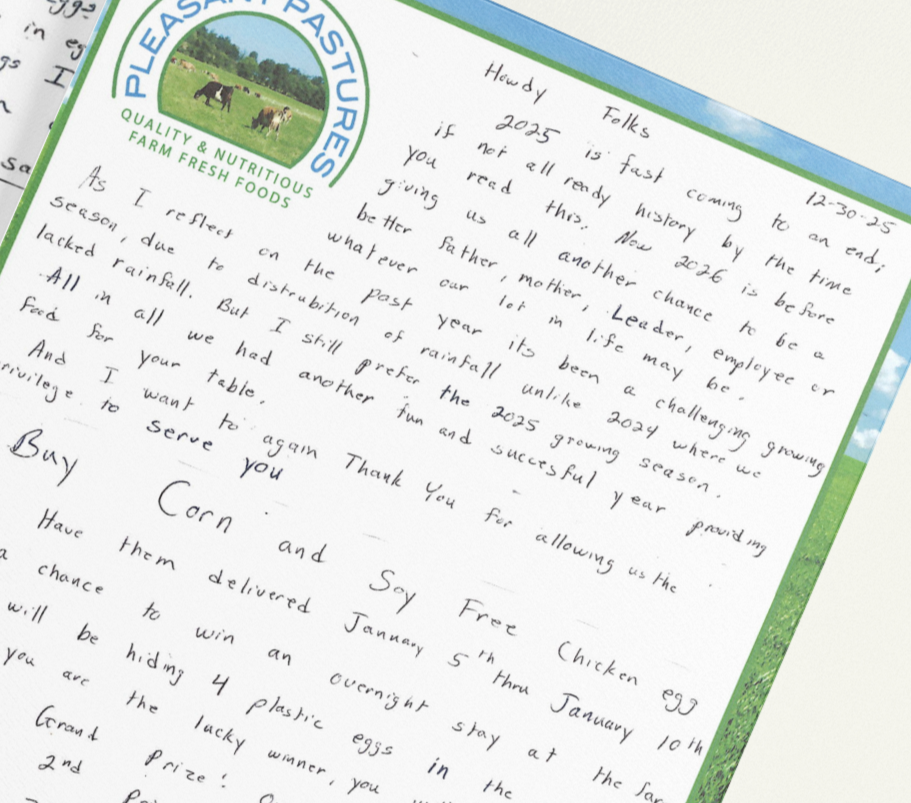 eggs
in eg
gs I
sa
PLEASANT PASTURES
QUALITY & NUTRITIOUS
FARM FRESH FOODS
12-30-25
Howdy Folks
2025 is fast coming to an end;
if not all ready history by the time
you read this. Now 2026 is before
giving us all another chance to be a
better father, mother, Leader, employee or
whatever our lot in life may be.
As I reflect on the past year its been a challenging growing
season, due to distrubition of rainfall unlike 2024 where we
lacked rainfall. But I still prefer the 2025 growing season.
All in all we had another fun and succesful year providing
Food for your table.
And I want to again Thank You for allowing us the
rivilege to serve you.
Buy Corn and Soy Free Chicken egg
Have them delivered January 5th thru January 10th
a chance to win an overnight stay at the far
will be hiding 4 plastic eggs in the
you are the lucky winner, you
Grand Prize:
2nd Pri